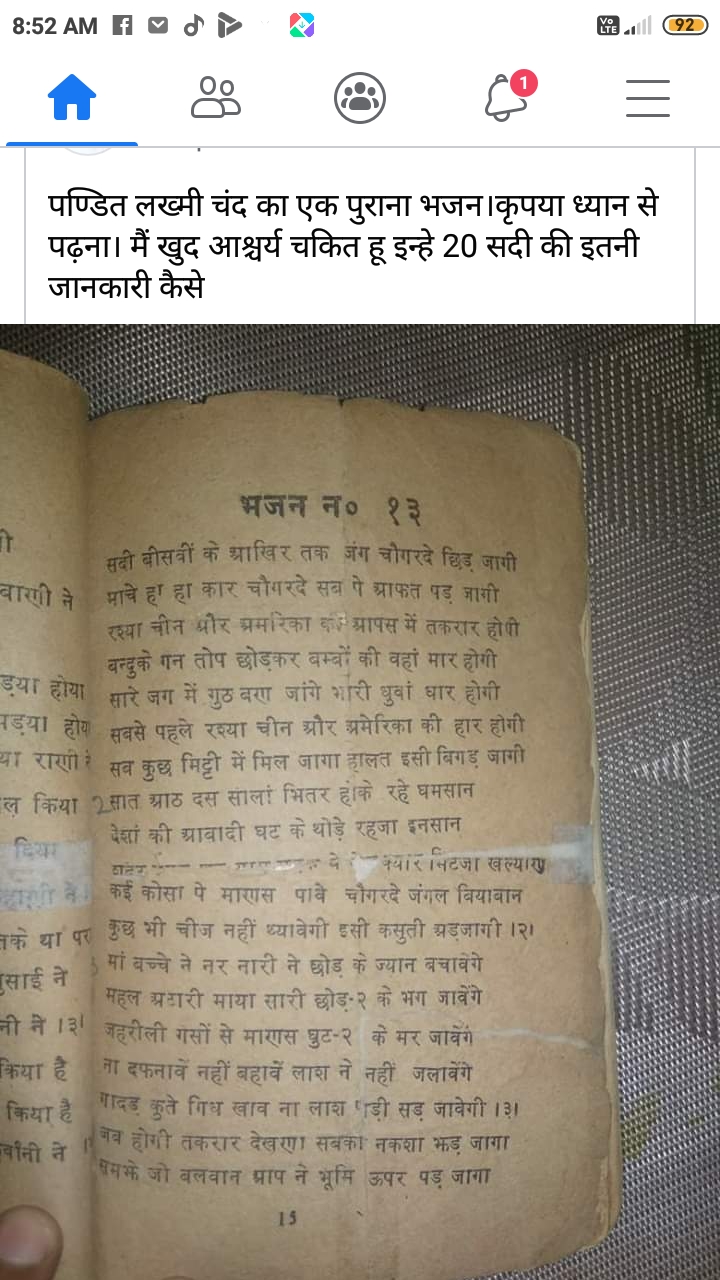 8:52 AM
Vo LTE
92
1
पण्डित लख्मी चंद का एक पुराना भजन।कृपया ध्यान से
पढ़ना। मैं खुद आश्चर्य चकित हू इन्हे 20 सदी की इतनी
जानकारी कैसे
भजन न० १३
सदी बीसवीं के आखिर तक जंग चौगरदे छिड़ जागी
माचे हा हा कार चौगरदे सब पे आफत पड़ जागी
रश्या चीन और अमरिका की आपस में तकरार होगी
बन्दुके गन तोप छोड़कर बम्बों की वहां मार होगी
सारे जग में गुठ बण जांगे भारी धुवां धार होगी
सबसे पहले रश्या चीन और अमेरिका की हार होगी
सब कुछ मिट्टी में मिल जागा हालत इसी बिगड़ जागी
सात आठ दस सालां भितर होके रहे घमसान
देशां की आबादी घट के थोड़े रहजा इनसान
मिटजा खल्याण
कई कोसा पे माणस पावे चौगरदे जंगल बियाबान
कुछ भी चीज नहीं थ्यावेगी इसी कसुती अड़जागी ।२।
मां बच्चे ने नर नारी ने छोड़ के ज्यान बचावेंगे
महल अटारी माया सारी छोड़-२ के भग जावेंगे
जहरीली गैसों से माणस घुट-२ के मर जावेंगे
ना दफनावें नहीं बहावें लाश ने नहीं जलावेंगे
गादड़ कुते गिध खाव ना लाश पड़ी सड़ जावेगी ।३।
जब होगी तकरार देखणा सबका नकशा झड़ जागा
समझे जो बलवान आप ने भूमि ऊपर पड़ जागा
15
वाणी ने
ड़या होया
या राणी
ल किया
दिया
तके था पर
नी ने ।३।
किया है
किया है